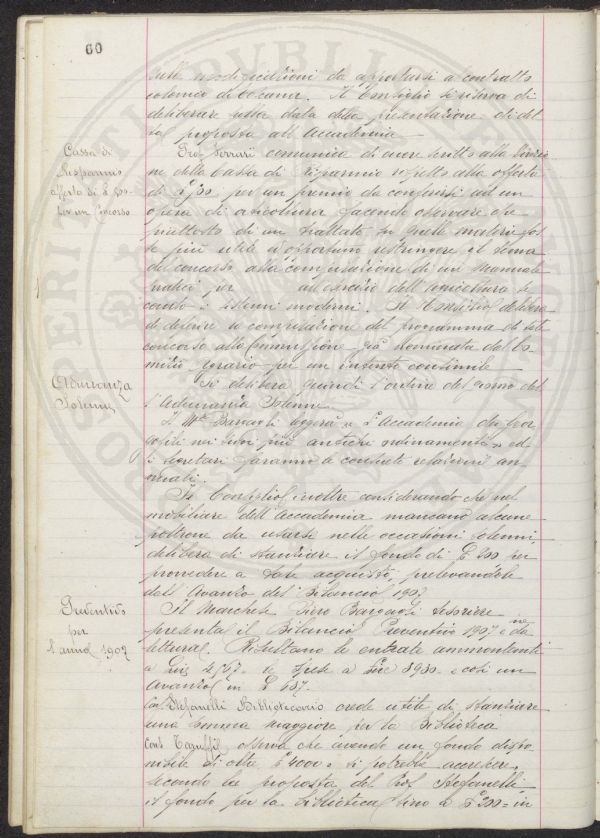 60
sulle modificazioni da apportarsi a contratto
colonico di Cesena. Il Consiglio si riserva di
deliberare sulla data della presentazione di det
ta proposta all'Accademia
Cassa di
Risparmio
offerta di £ 500
per un Concorso
Prof. Ferrari comunica di avere scritto alla Direzio
ne della Cassa di Risparmio rispetto alla offerta
di £ 500 per un premio da conferirsi ad un
opera di avicoltura facendo osservare che
piuttosto di un trattato in quelle materie fos
se più utile e opportuno restringere il tema
del concorso alla compilazione di un Manuale
pratico per esercizio dell'avicoltura se
condo i sistemi moderni. Il Consiglio delibera
di deferire la compilazione del programma di tale
concorso alla Commissione già nominata dal Co
mizio Agrario per un intento consimile
Adunanza
Solenne
Si delibera quindi l'ordine del giorno del
l'Adunanza Solenne
Il Mse Bargagli leggerà L'Accademia dei Geor
gofili nei suoi più antichi ordinamenti ed
i Segretari faranno le consuete relazioni an
nuali.
Il Consiglio inoltre considerando che nel
mobiliare dell'Accademia mancano alcune
poltrone da usarsi nelle occasioni solenni
delibera di stanziare il fondo di £ 200 per
provvedere a tale acquisto prelevandole
dall'Avanzo del Bilancio 1907
Preventivo
per
l'anno 1907
Il Marchese Piero Bargagli tesoriere
presenta il Bilancio Preventivo 1907 e ne dà
lettura. Risultano le entrate ammontanti
a Lire 4567 le spese a Lire 3930 e così un
avanzo in £ 637.
Stefanelli Bibliotecario crede utile di stanziare
una somma maggiore per la Biblioteca
Conte Taruffi osserva che avendo un fondo dispo
nibile di oltre £ 4000 si potrebbe accrescere
secondo la proposta del Prof. Stefanelli
il fondo per la Biblioteca fino a £ 200 = in